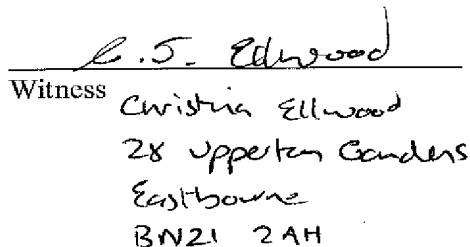 C. J. Ellwood
Witness
Christina Ellwood
28 Upperton Gardens
Eastbourne
BN21 2AH